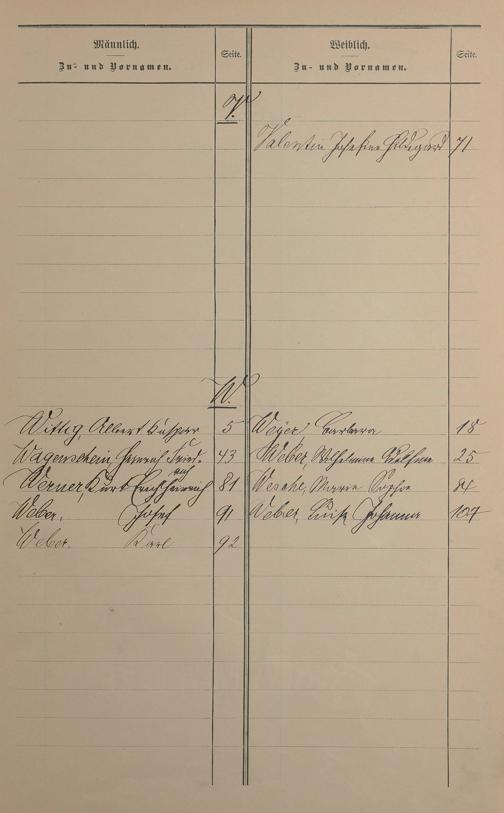 Männlich.
Zu- und Vornamen.
Seite.
Weiblich.
Zu- und Vornamen.
Seite.
V.
Valentin Josefine Hildegard 71
W.
Wittig, Albert Kaspar 5
Wagenschein, Heinrich Fried- 43
Werner, Kurt Erich Heinrich 81
Weber. Josef 91
Weber. Karl 92
Weyer Barbara 18
Weber, Wilhelmine 25
Maria Sophie 84
Weber, Luise Johanna 107